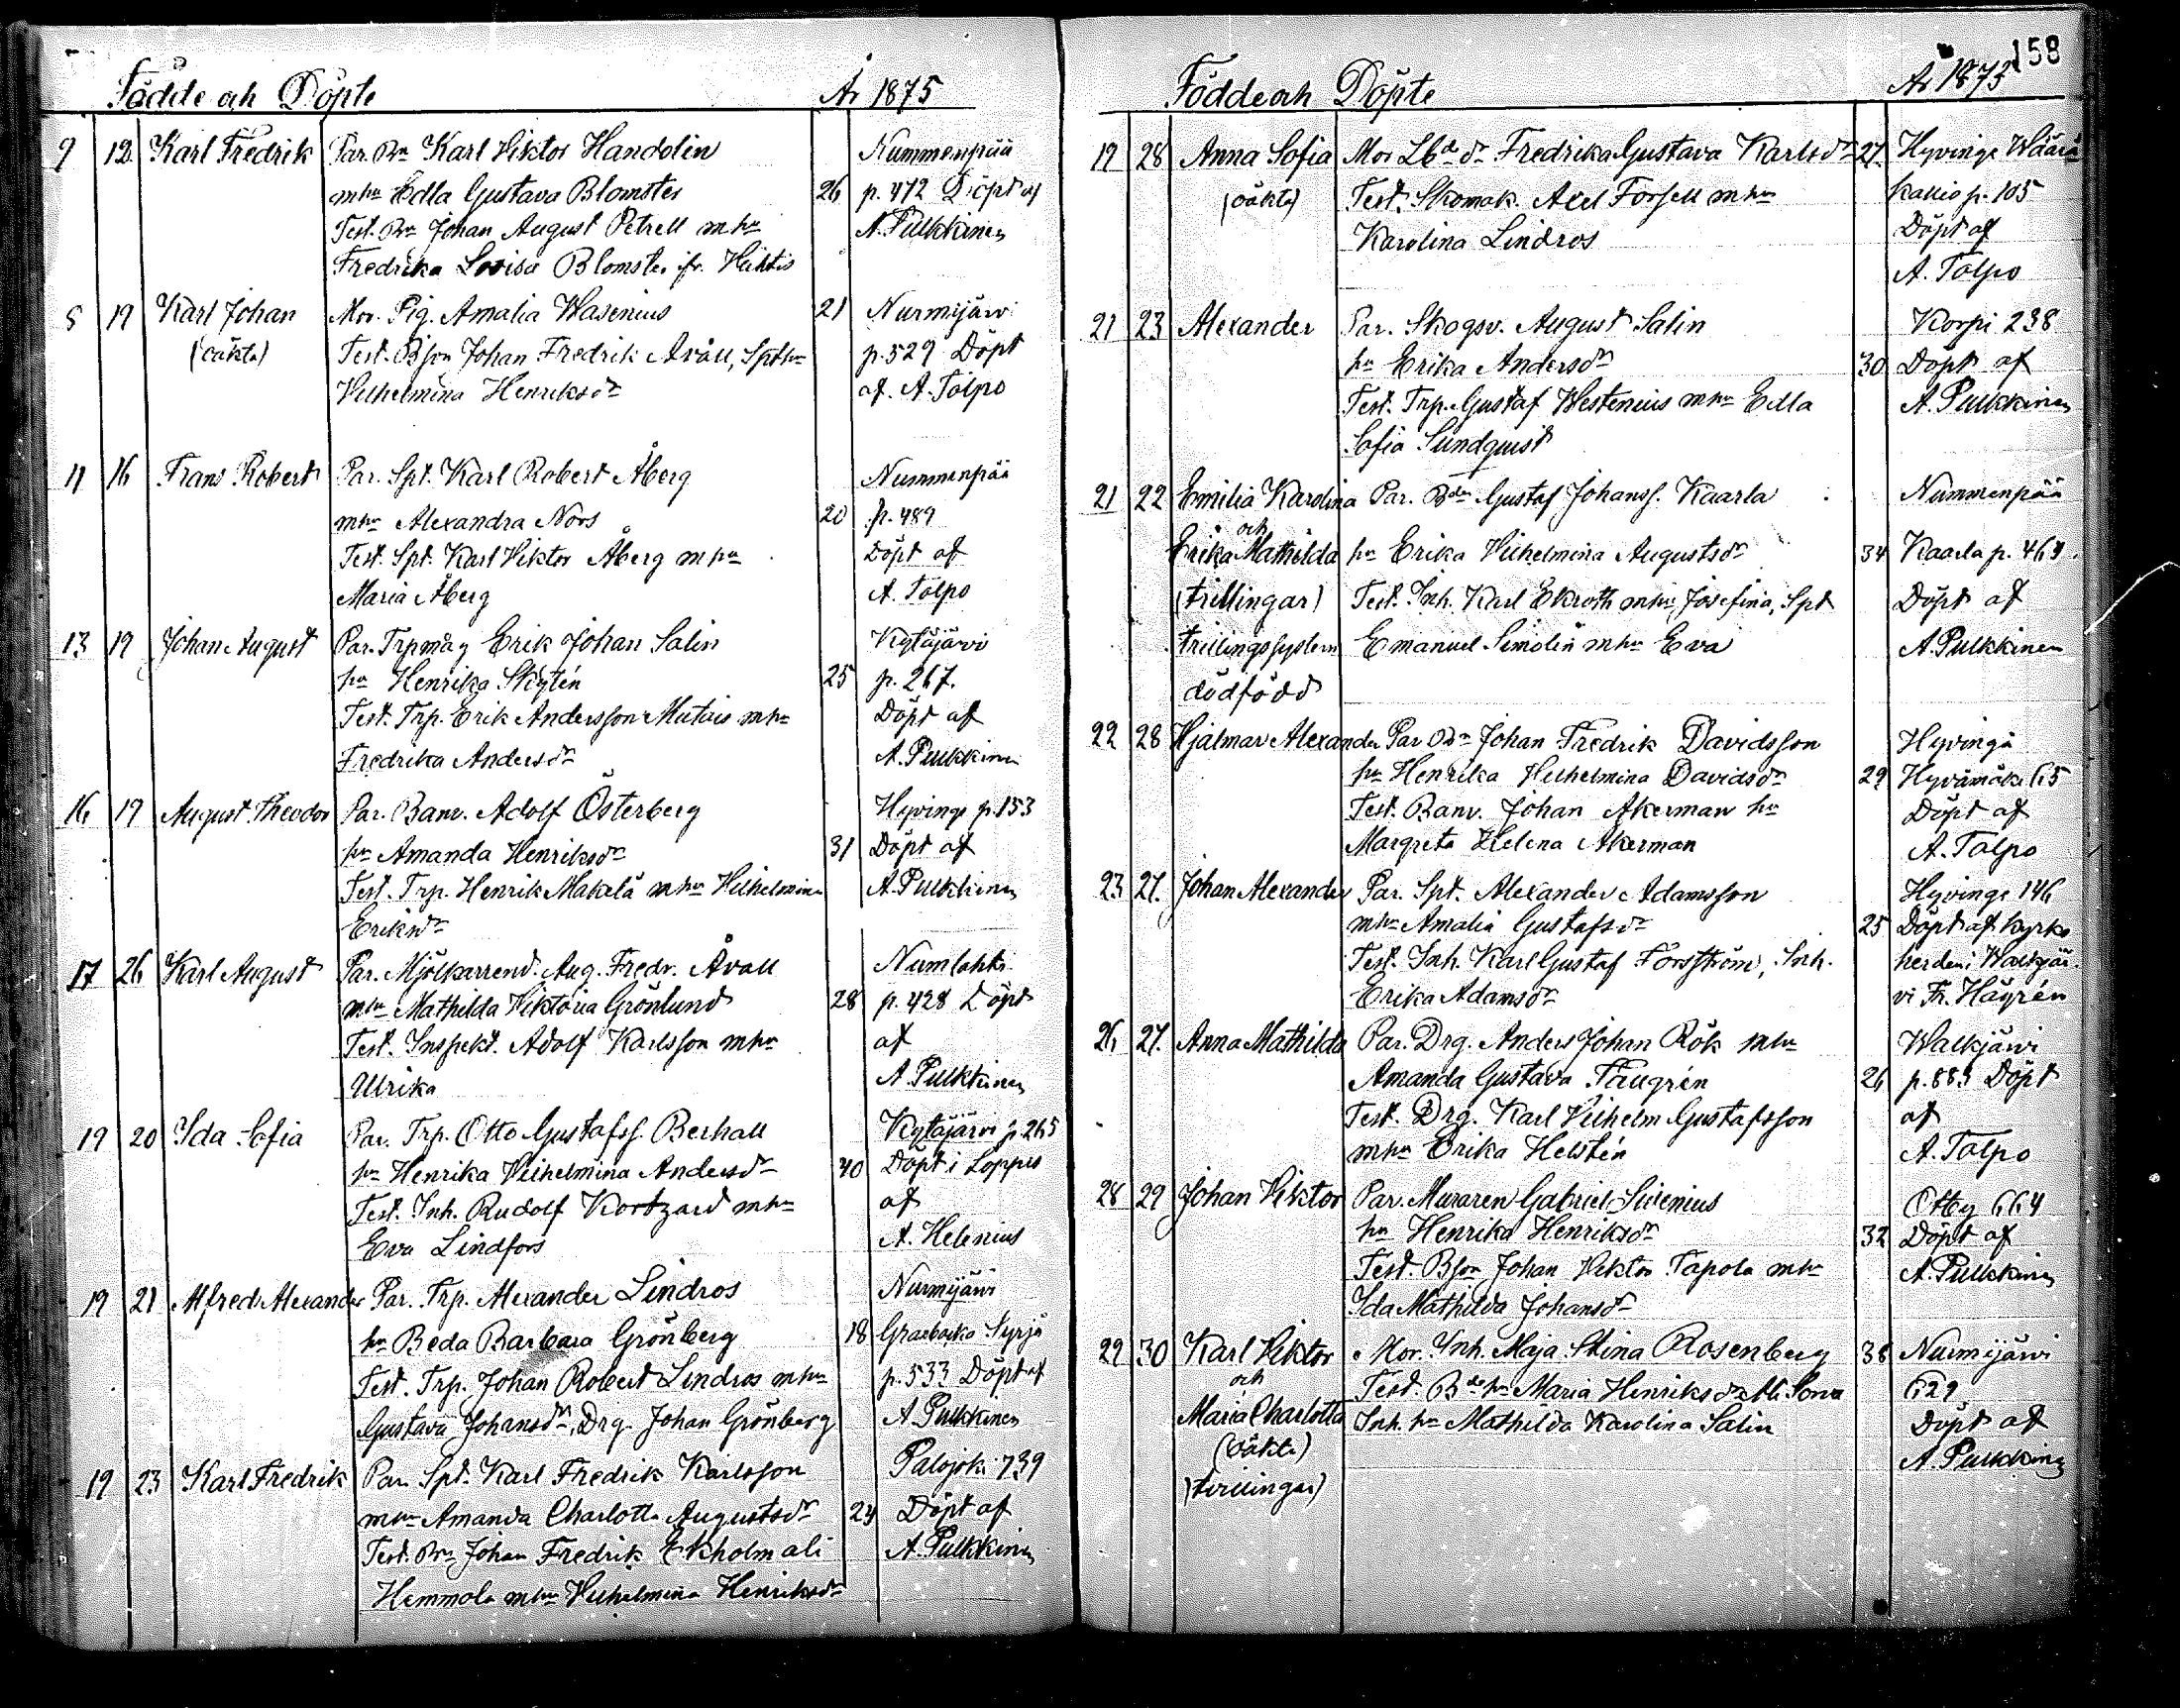 Födde och Döpte År 1875
9 12. Karl Fredrik Par. Bn Karl Viktor Handolin Nummenpää
mhu Edla Gustava Blomster 26 p. 472 Döpt af
Test. Bn Johan August Petrell mhu A. Pulkkinen
Fredrika Lovisa Blomster fr. Vichtis
5 19 Karl Johan Mor. Pig. Amalia Wasenius 21 Nurmijärvi
(oäkta) Test. Bson Johan Fredrik Avall, Spt hu p. 529 Döpt
Vilhelmina Henriksdr af. A. Tolpo
11 16 Frans Robert Par. Spt. Karl Robert Åberg Nummenpää
mhu Alexandra Noos 20 p. 489
Test. Spt. Karl Viktor Åberg mhu Döpt af
Maria Åberg A. Tolpo
13 19 Johan August Par. Trpmåg Erik Johan Salin Kytäjärvi
hu Henrika Skytén 25 p. 267.
Test. Trp. Erik Andersson Mutais mhu Döpt af
Fredrika Andersdr A. Pulkkinen
16 17 August Theodor Par. Banv. Adolf Österberg Hyvinge p. 153
hu Amanda Henriksdr 31 Döpt af
Test. Trp. Henrik Makelä mhu Vilhelmina A. Pulkkinen
Eriksdr
17 26 Karl August Par. Mjölkarrend. Aug. Fredr. Åvall Numlahti
mhu Mathilda Viktoria Grönlund 28 p. 428 Döpt
Test. Inspekt. Adolf Karlsson mhu af
Ulrika A. Pulkkinen
19 20 Ida Sofia Par. Trp. Otto Gustafss. Berhall Kytäjärvi p. 265
hu Henrika Vilhelmina Andersdr 40 Döpt i Loppis
Test. Inh. Rudolf Kortzard mhu af
Eva Lindfors A. Helenius
19 21 Alfred Alexander Par. Trp. Alexander Lindros Nurmijärvi
hu Beda Barbara Grönberg 18 Grasbacka Syrjä
Test. Trp. Johan Robert Lindros mhu p. 533 Döpt af
Gustava Johansdr, Drg. Johan Grönberg A. Pulkkinen
19 23 Karl Fredrik Par. Spt. Karl Fredrik Karlsson Palojoki 739
mhu Amanda Charlotta Augustsdr 24 Döpt af
Test. Bn Johan Fredrik Ekholm ali A. Pulkkinen
Hemmola mhu Vilhelmina Henriksdr
158
Födde och Döpte År 1875
19 28 Anna Sofia Mor Lbde dr Fredrika Gustava Karlsdr 27. Hyvinge Wäärä
(oäkta) Test. Skomak. Axel Forsell mhu kallio p. 105
Karolina Lindros Döpt af
A. Tolpo
21 23 Alexander Par. Skogsv. August Salin Korpi 238
hu Erika Andersdr 30 Döpt af
Test. Trp. Gustaf Westenius mhu Edla A. Pulkkinen
Sofia Sundquist
21 22 Emilia Karolina Par. Bdn Gustaf Johanss. Kaarla Nummenpää
och
Erika Mathilda hu Erika Vilhelmina Augustsdr 34 Kaarla p. 464.
(trillingar) Test. Inh. Karl Ekroth mhu, Josefina, Spt Döpt af
trillingssystern Emanuel Simolin mhu Eva A. Pulkkinen
dödfödd
22 28 Hjalmar Alexander Par Bn Johan Fredrik Davidsson Hyvinge
hu Henrika Vilhelmina Davidsdr 29 Hyvämäki 65
Test. Banv. Johan Akerman hu Döpt af
Margreta Helena Akerman A. Tolpo
23 27. Johan Alexander Par. Spt. Alexander Adamsson Hyvinge 146
mhu Amalia Gustafsdr 25 Döpt af kyrko
Test. Inh. Karl Gustaf Forsström, Inh. herden i Walkjär
Erika Adamsdr vi Fr. Häyrén
26 27. Anna Mathilda Par. Drg. Anders Johan Rök mhu Walkjärvi
Amanda Gustava Taugrén 26 p. 883 Döpt
Test. Drg. Karl Vilhelm Gustafsson af
mhu Erika Helstén A. Tolpo
28 29 Johan Viktor Par. Muraren Gabriel Sirenius Otby 664
hu Henrika Henriksdr 32 Döpt af
Test. Bson Johan Viktor Tapola mhu A. Pulkkinen
Ida Mathilda Johansdr
29 30 Karl Viktor Mor. Inh. Maja Stina Rosenberg 38 Nurmijärvi
och Test. Bde hu Maria Henriksdr 629
Maria Charlotta Inh. hu Mathilda Karolina Salin Döpt af
(oäkta) A. Pulkkinen
(tvillingar)